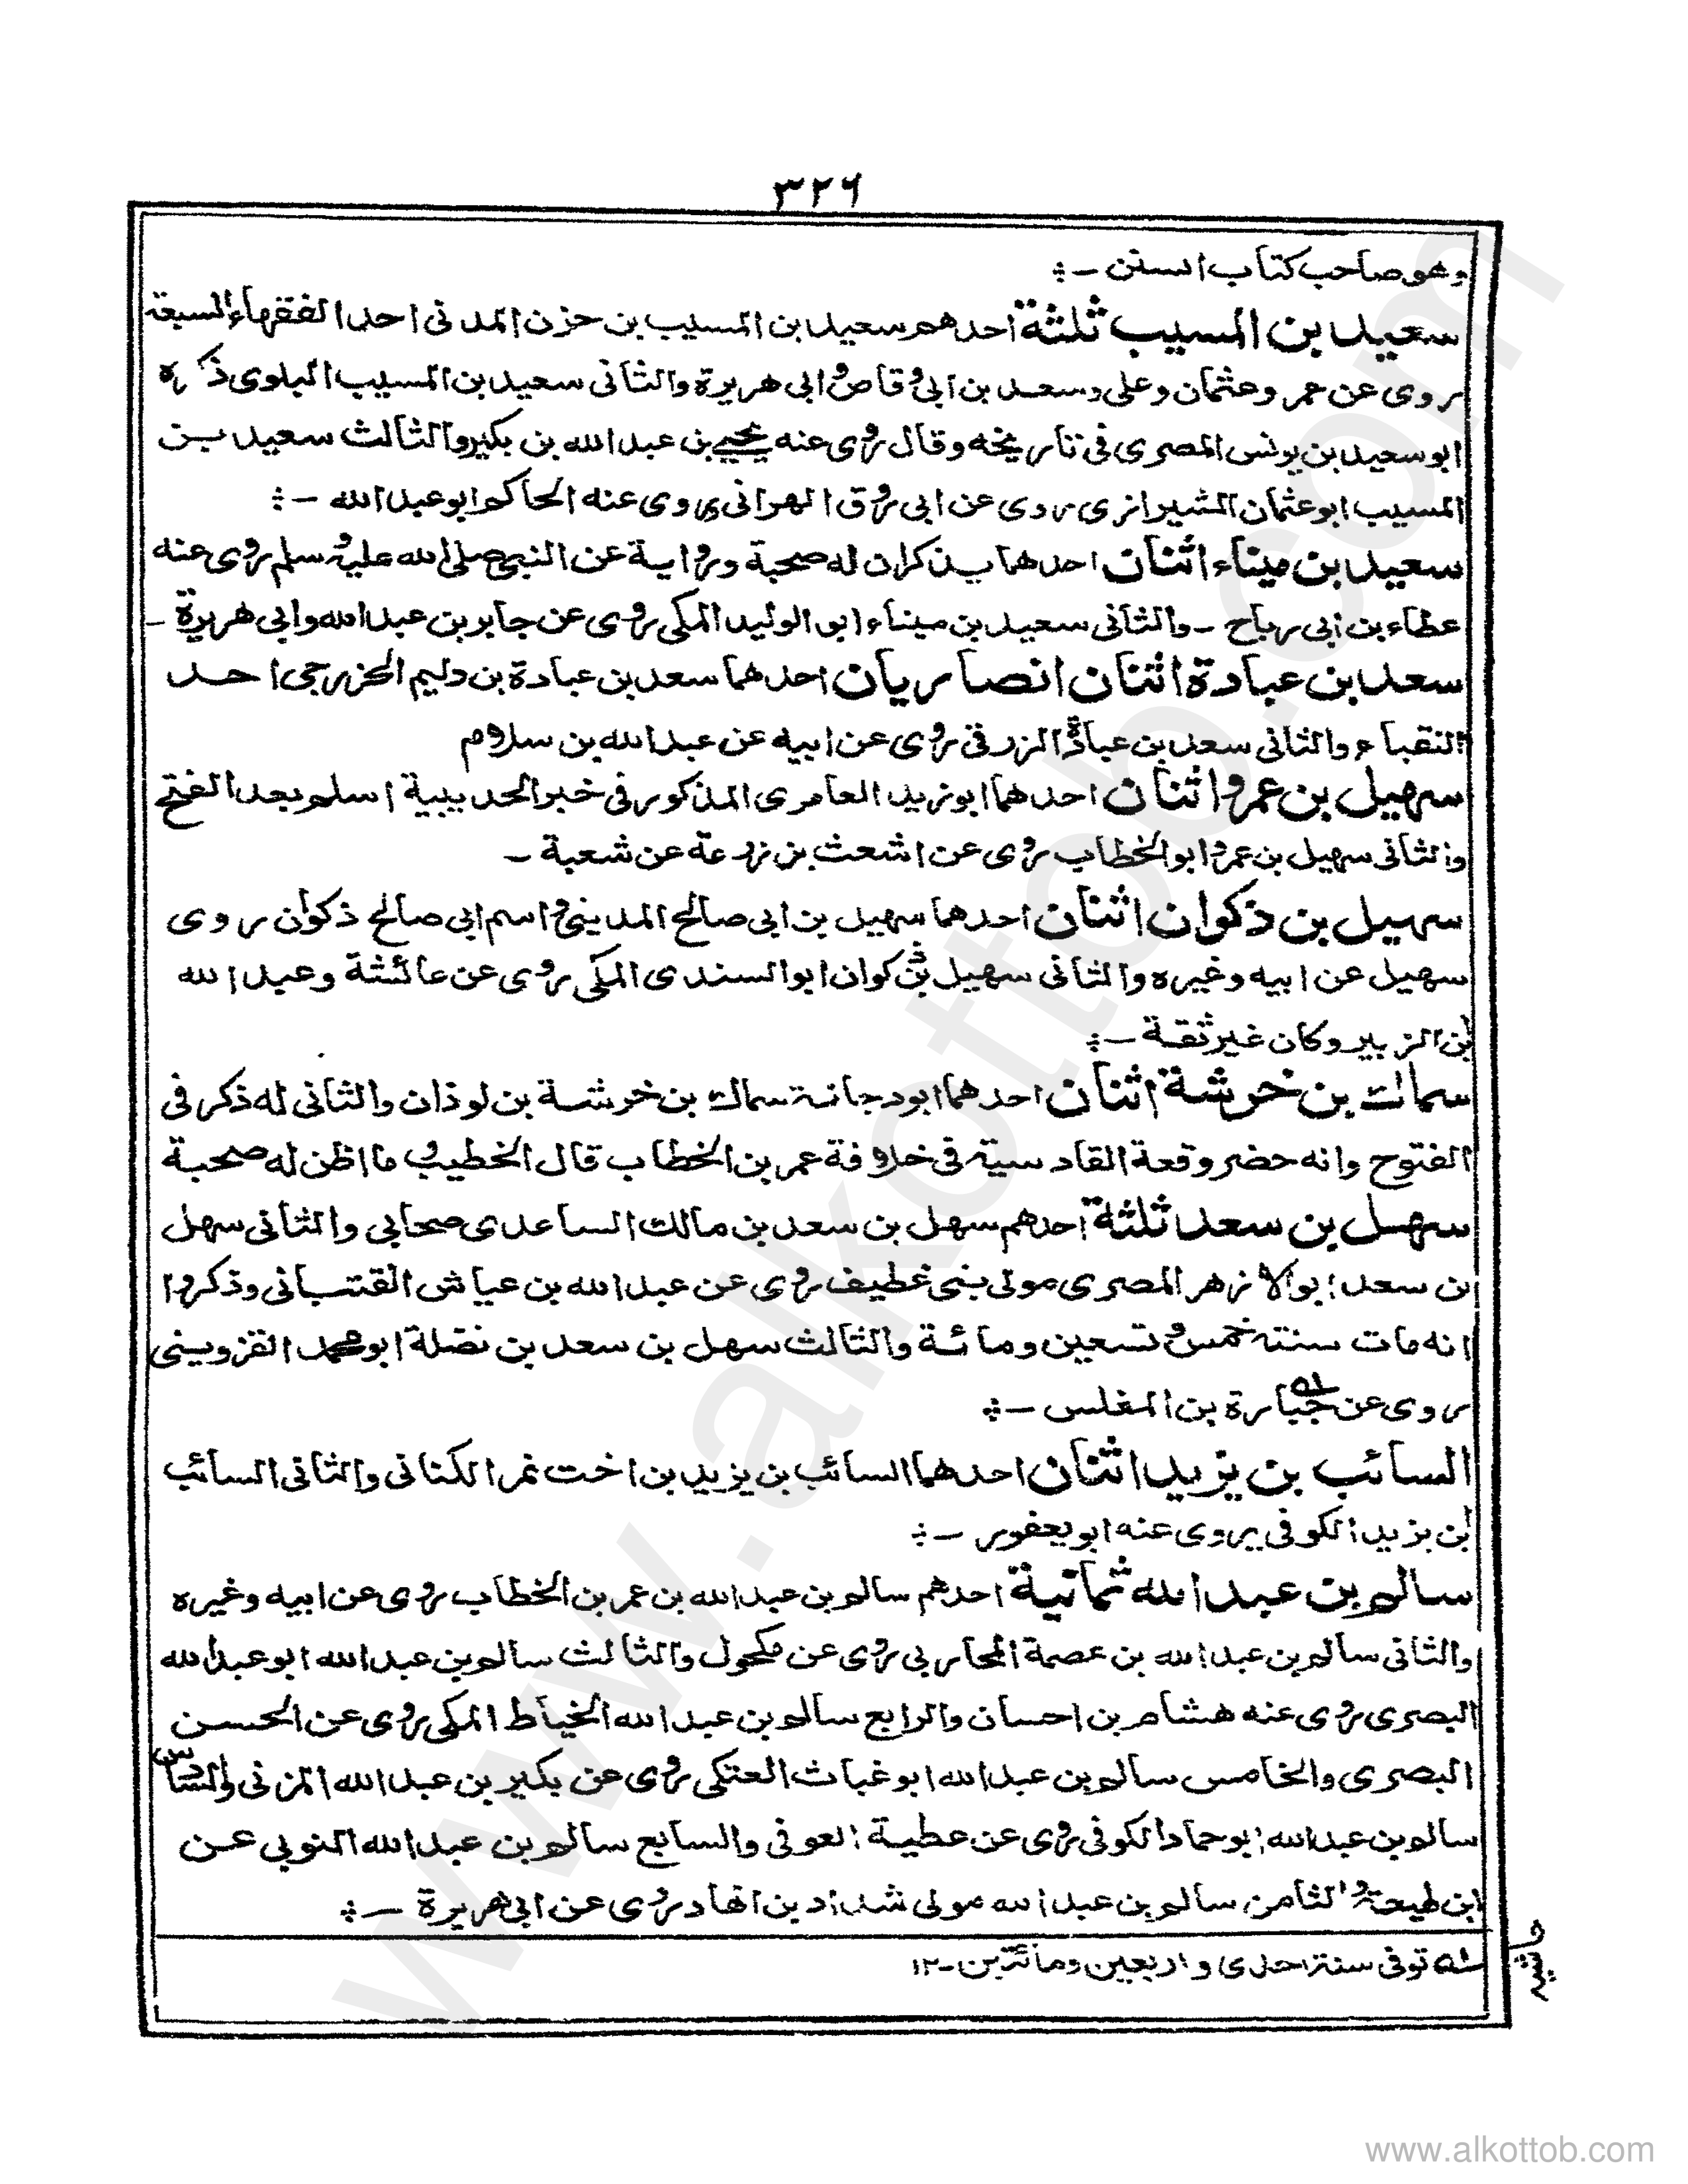 ٣٢٦
وهو صاحب كتاب السنن -
سعيد بن المسيب ثلثة احدهم سعيد بن المسيب بن حزن المدنى احد الفقهاء السبعة
روى عن عمر وعثمان وعلى وسعد بن ابى وقاص وابى هريرة والثانى سعيد بن المسيب البلوى ذكره
ابو سعيد بن يونس المصرى فى تاريخه وقال روى عنه يحيى بن عبد الله بن بكير والثالث سعيد بن
المسيب ابو عثمان الشيرازى روى عن ابى روق الهزانى روى عنه الحاكم ابو عبد الله -
سعيد بن ميناء اثنان احدهما يذكر ان له صحبة ورواية عن النبى صلى الله عليه وسلم روى عنه
عطاء بن ابى رباح - والثانى سعيد بن ميناء ابو الوليد المكى روى عن جابر بن عبد الله وابى هريرة -
سعد بن عبادة اثنان انصاريان احدهما سعد بن عبادة بن دليم الخزرجى احد
النقباء والثانى سعد بن عبادة الزرقى روى عن ابيه عن عبد الله بن سلام
سهيل بن عمرو اثنان احدهما ابو يزيد العامرى المذكور فى خبر الحديبية اسلم بعد الفتح
والثانى سهيل بن عمرو ابو الخطاب روى عن اشعث بن زرعة عن شعبة -
سهيل بن ذكوان اثنان احدهما سهيل بن ابى صالح المدينى واسم ابى صالح ذكوان روى
سهيل عن ابيه وغيره والثانى سهيل بن ذكوان ابو السندى المكى روى عن عائشة وعبد الله
بن الزبير وكان غير ثقة -
سماك بن خرشة اثنان احدهما ابو دجانة سماك بن خرشة بن لوذان والثانى له ذكر فى
الفتوح وانه حضر وقعة القادسية فى خلافة عمر بن الخطاب قال الخطيب وما اظن له صحبة
سهل بن سعد ثلثة احدهم سهل بن سعد بن مالك الساعدى صحابى والثانى سهل
بن سعد ابو الازهر المصرى مولى بنى غطيف روى عن عبد الله بن عياش القتبانى وذكروا
انه مات سنة خمس وتسعين ومائة والثالث سهل بن سعد بن نضلة ابو محمد القزوينى
روى عن جبارة ٥١ بن المغلس -
السائب بن يزيد اثنان احدهما السائب بن يزيد بن اخت نمر الكنانى والثانى السائب
بن يزيد الكوفى يروى عنه ابو يعفور -
سالم بن عبد الله ثمانية احدهم سالم بن عبد الله بن عمر بن الخطاب روى عن ابيه وغيره
والثانى سالم بن عبد الله بن عصمة المحاربى روى عن مكحول والثالث سالم بن عبد الله ابو عبد الله
البصرى روى عنه هشام بن احسان والرابع سالم بن عبد الله الخياط المكى روى عن الحسن
البصرى والخامس سالم بن عبد الله ابو غياث العتكى روى عن بكير بن عبد الله المزنى والسادس
سالم بن عبد الله ابو حماد الكوفى روى عن عطية العوفى والسابع سالم بن عبد الله النوبى عن
ابن لهيعة والثامن سالم بن عبد الله مولى شداد بن الهاد روى عن ابى هريرة -
٥١ توفى سنة احدى واربعين ومائتين - ١٢
حاشيه
www.alkottob.com